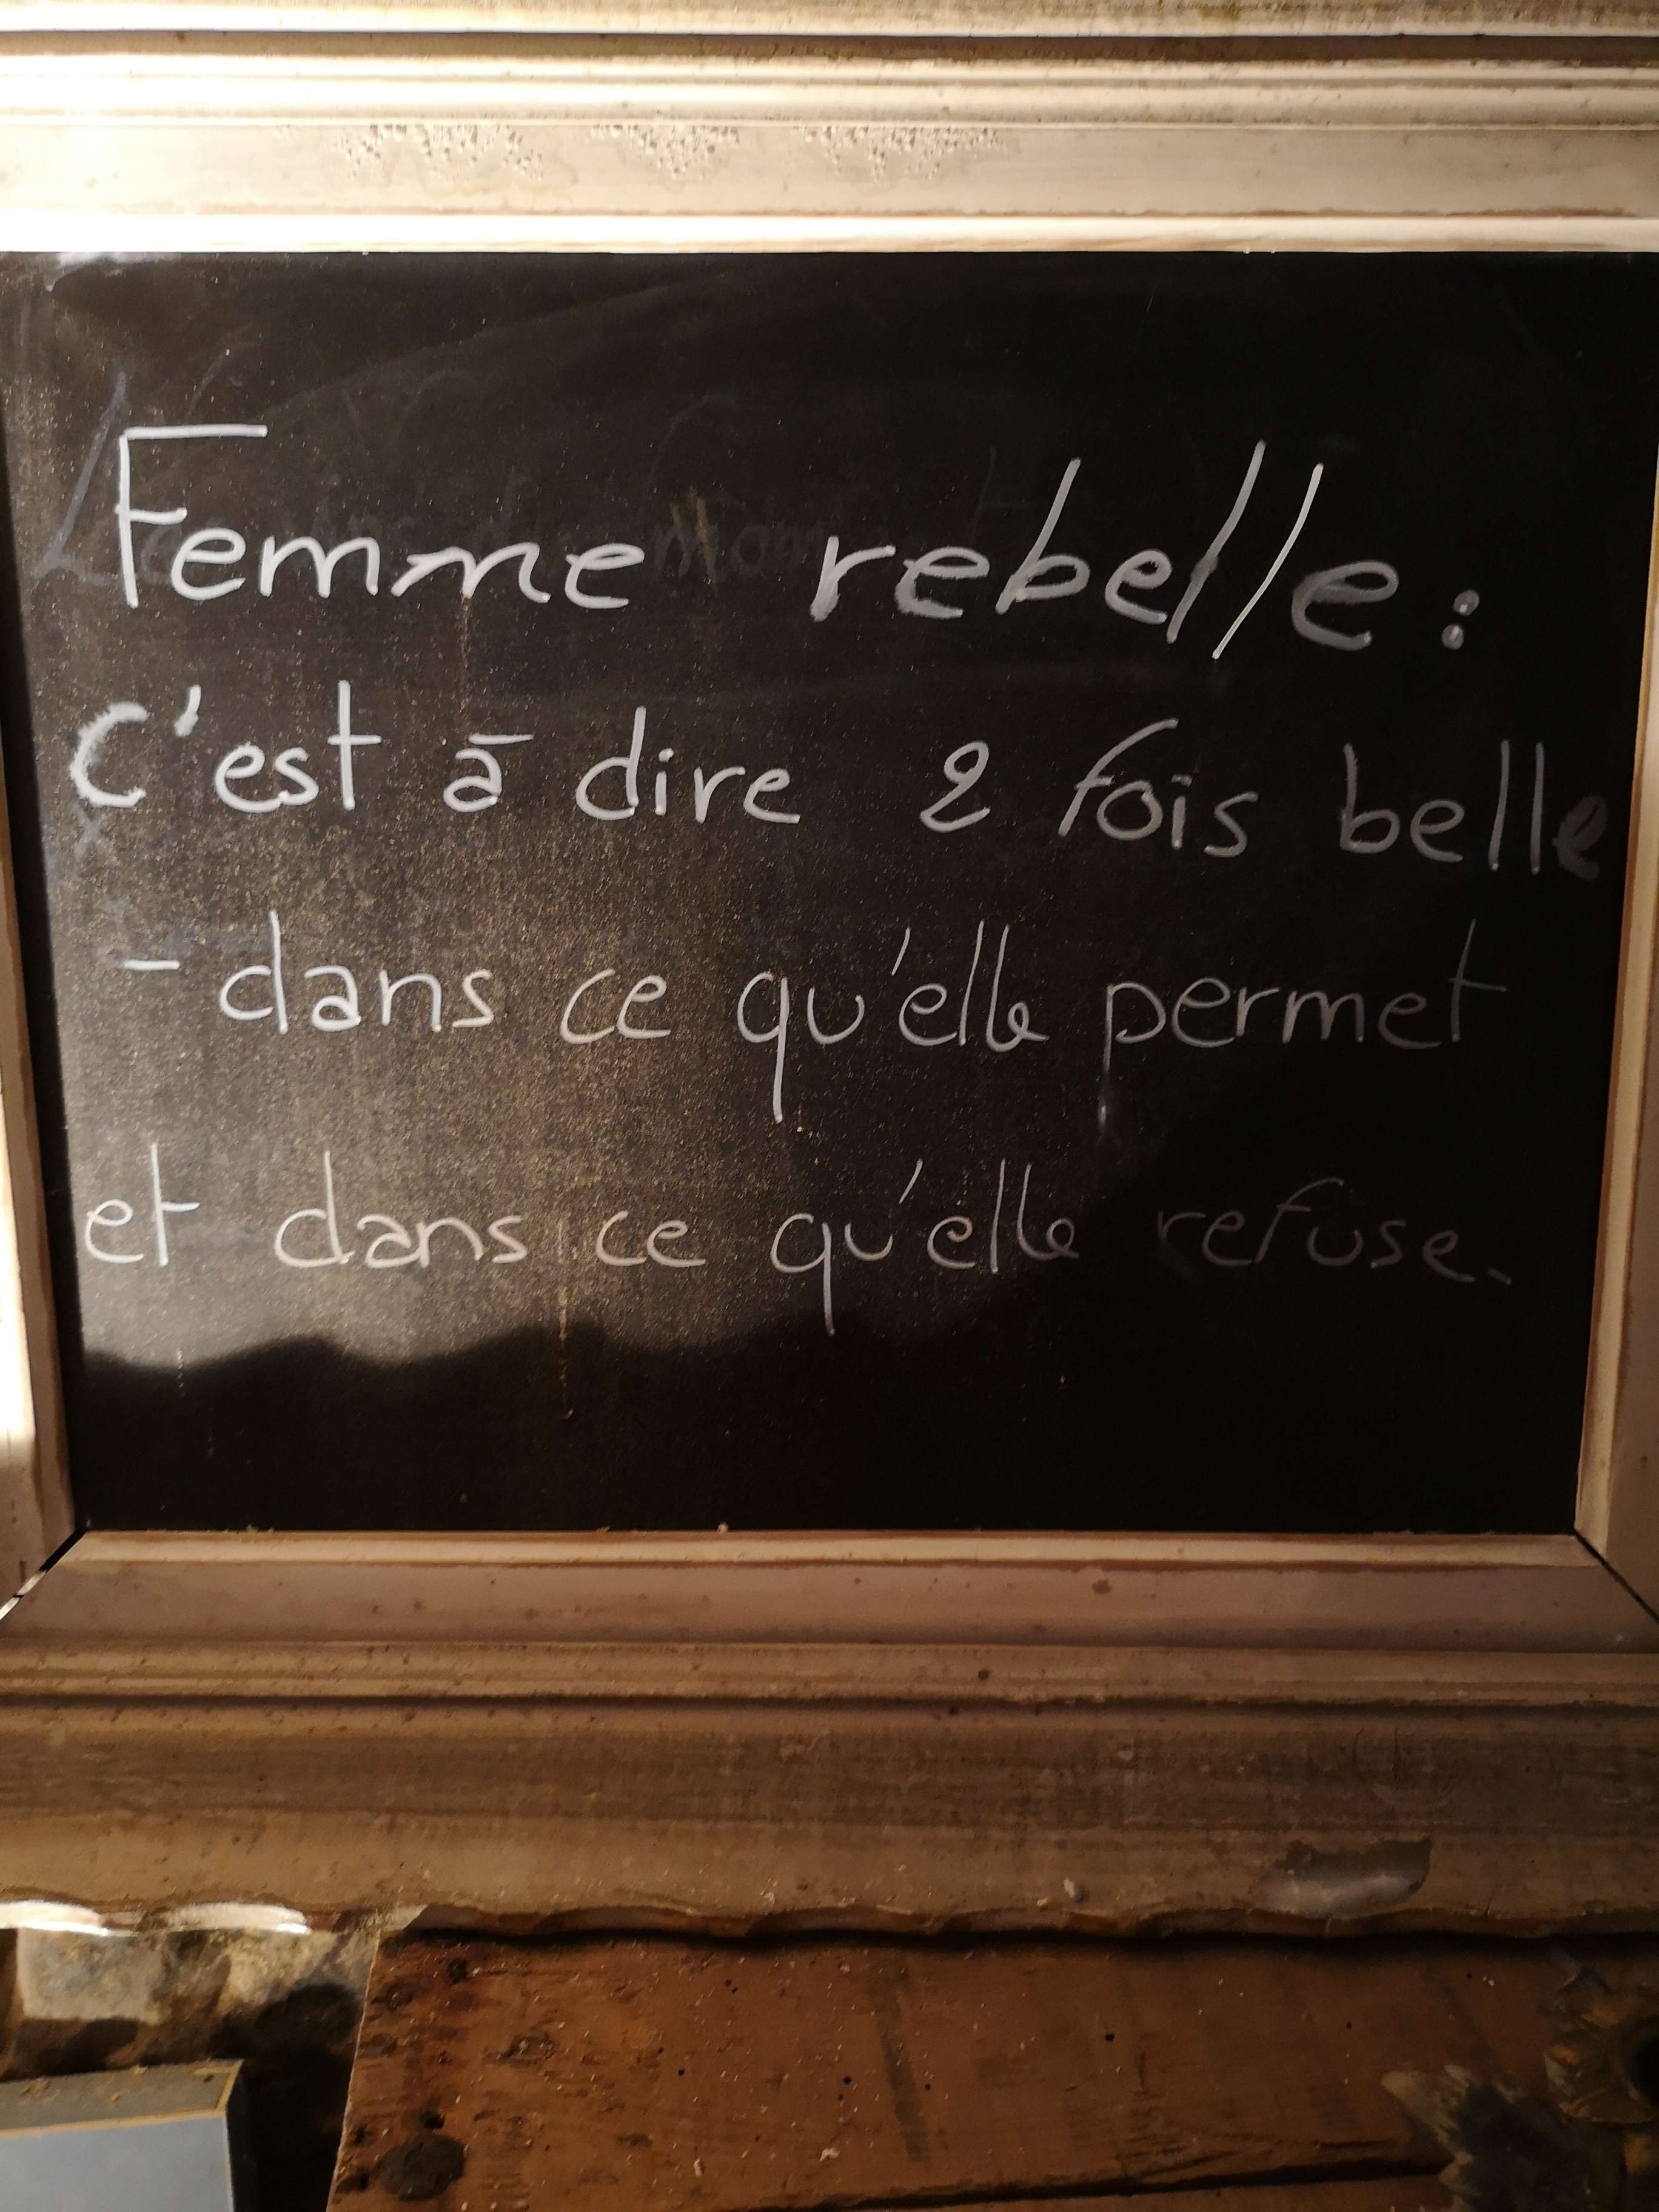 Femme rebelle :
C'est à dire 2 fois belle
- dans ce qu'elle permet
et dans ce qu'elle refuse.